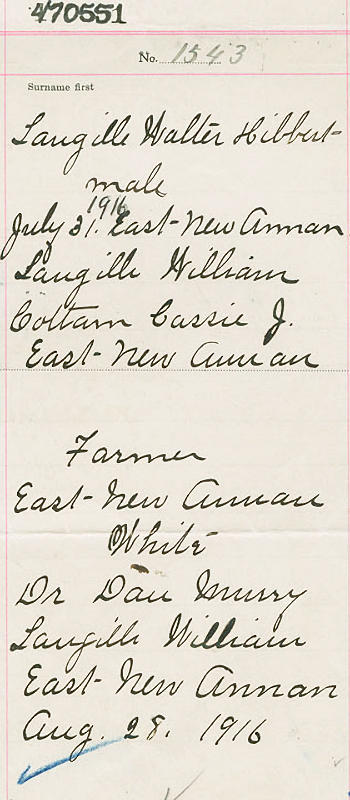 470551
No. 1543
Surname first
Langille Walter Hibbert
male
1916
July 31. East-New Annan
Langille William
Cottam Cassie J.
East-New Annan
Farmer
East-New Annan
White
Dr Dan Murry
Langille William
East-New Annan
Aug. 28. 1916